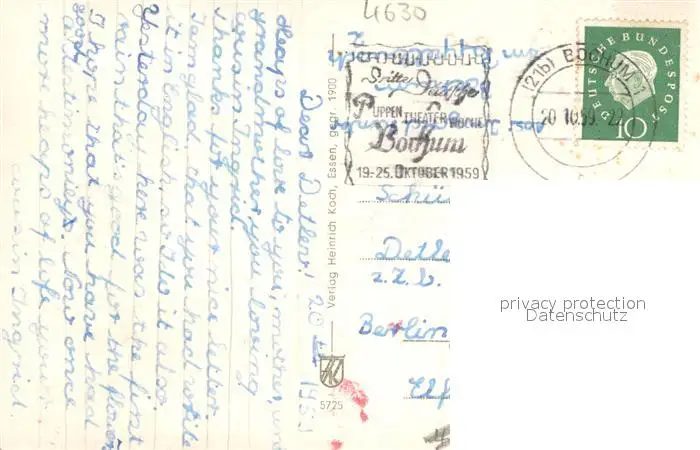 4630
Dear Detlev! 20 1959
Heaps of love to you, mother, and
grandmother, you loving
cousin Ingrid.
Thanks for your nice letter
I am glad, that you had write
it in English, so I do it also
Yesterday here was the first
rain, that is good for the flower
I hope that you have had
good Now once
more heaps of love your
cousin Ingrid.
Verlag Heinrich Koch, Essen, gegr. 1900
5725
Dritte Deutsche
PUPPENTHEATER WOCHE
Bochum
19.-25. OKTOBER 1959
(21b) BOCHUM
20.10.59
DEUTSCHE BUNDESPOST
10
Schü
Detle
z. Z. b.
Berlin
privacy protection
Datenschutz